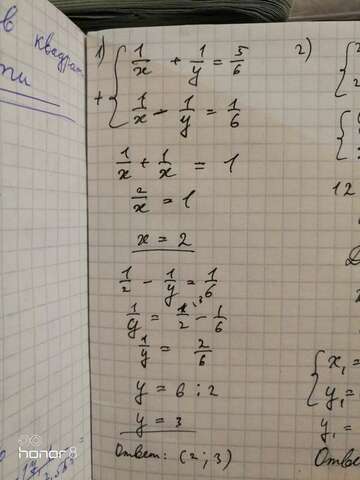 в квадрат
1) { 1/x + 1/y = 5/6
+ { 1/x - 1/y = 1/6
1/x + 1/x = 1
2/x = 1
x = 2
1/2 - 1/y = 1/6
1/y = 1/2 - 1/6
1/y = 2/6
y = 6 : 2
y = 3
Ответ: (2 ; 3)
2)
12
x₁ =
y₁ =
y₁ =
Ответ
honor 8